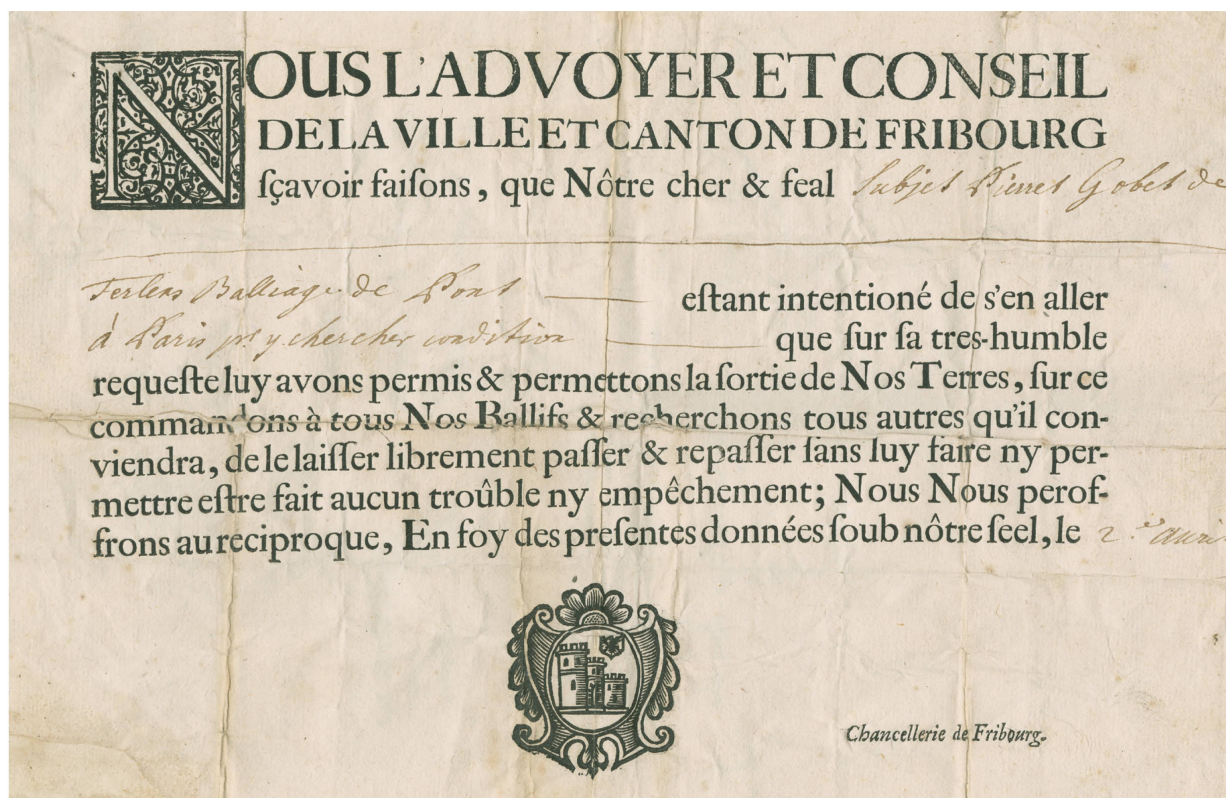 NOUS L'ADVOYER ET CONSEIL
DE LA VILLE ET CANTON DE FRIBOURG
ſçavoir faiſons, que Nôtre cher & feal Subjet Pierre Gobet de
Ferlens Balliage de Pont eſtant intentioné de s'en aller
à Paris pr. y chercher condition que ſur ſa tres-humble
requeſte luy avons permis & permettons la ſortie de Nos Terres, ſur ce
commandons à tous Nos Ballifs & recherchons tous autres qu'il con-
viendra, de le laiſſer librement paſſer & repaſſer ſans luy faire ny per-
mettre eſtre fait aucun troûble ny empêchement; Nous Nous perof-
frons au reciproque, En foy des preſentes données ſoub nôtre ſeel, le 2.e
Chancellerie de Fribourg.